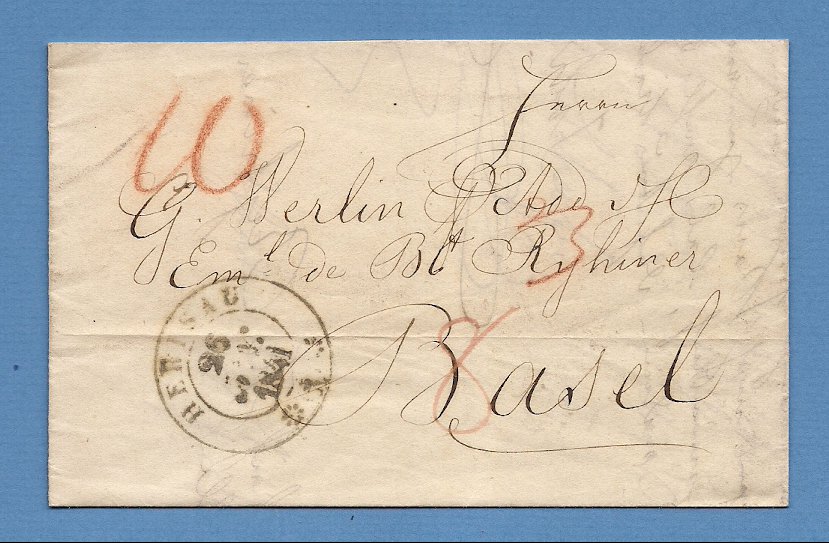 Herrn
10
G. Werlin
3
Em.l de Bt Ryhiner
HERISAU
26
1841
8
Basel